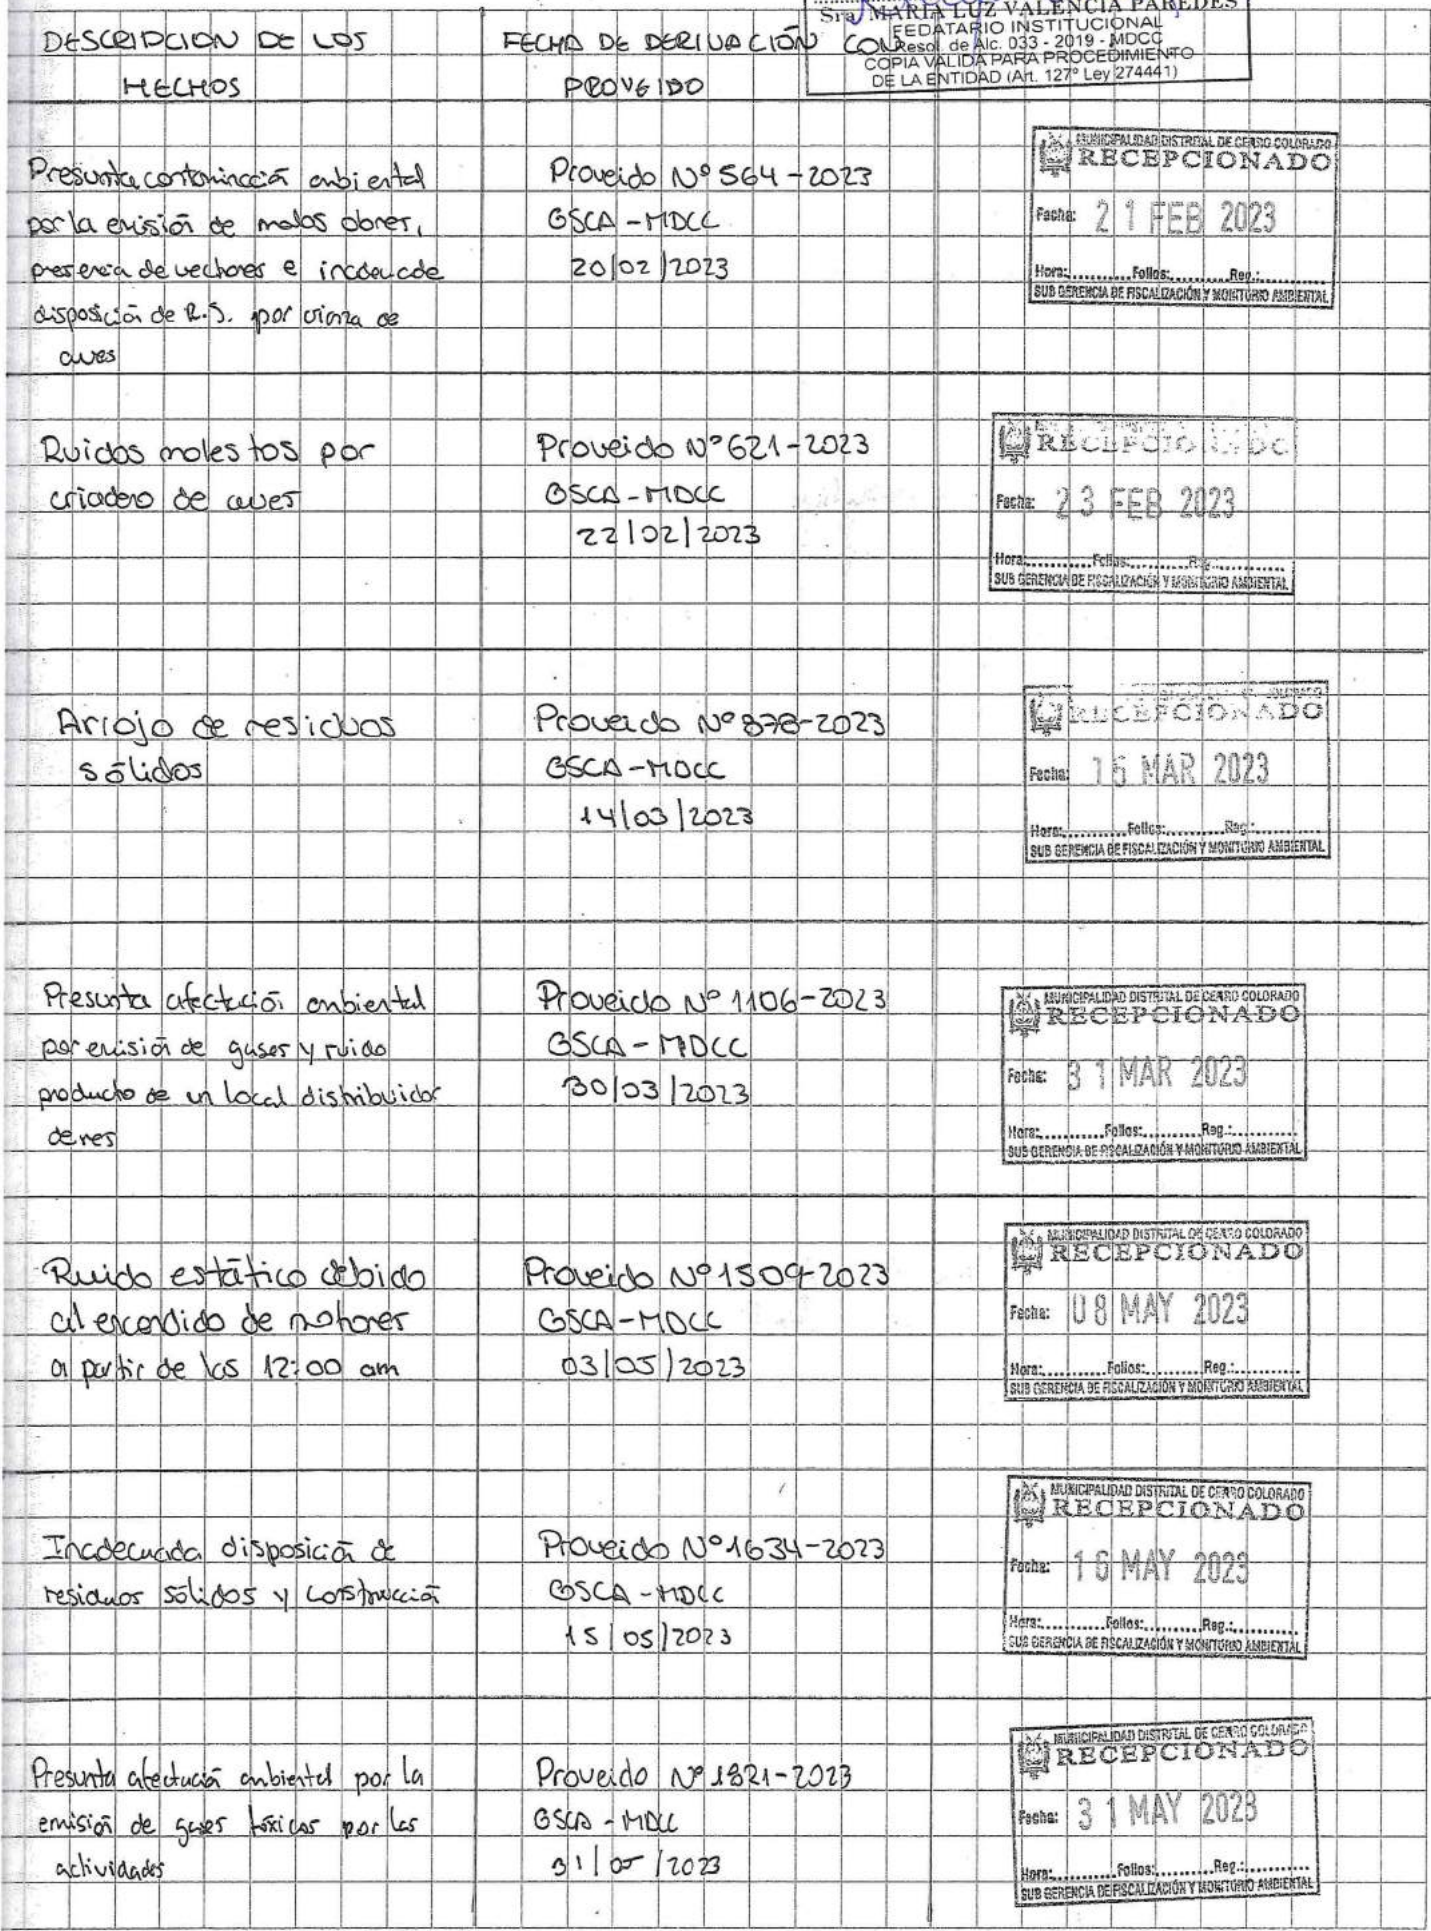 Sra MARIA LUZ VALENCIA PAREDES
FEDATARIO INSTITUCIONAL
Resol. de Alc. 033 - 2019 - MDCC
COPIA VALIDA PARA PROCEDIMIENTO
DE LA ENTIDAD (Art. 127º Ley 274441)
DESCRIPCION DE LOS
HECHOS
FECHA DE DERIVACIÓN CON
PROVEIDO
Presunta contaminación ambiental
por la emisión de malos olores,
presencia de vectores e inadecuada
disposición de R.S. por crianza de
aves
Proveido Nº 564-2023
GSCA-MDCC
20/02/2023
MUNICIPALIDAD DISTRITAL DE CERRO COLORADO
RECEPCIONADO
Fecha: 21 FEB 2023
Hora:...........Folios:...........Reg.:...........
SUB GERENCIA DE FISCALIZACIÓN Y MONITORIO AMBIENTAL
Ruidos molestos por
criadero de aves
Proveido Nº 621-2023
GSCA-MDCC
22/02/2023
RECEPCIONADO
Fecha: 23 FEB 2023
Hora:...........Folios:...........Reg.:...........
SUB GERENCIA DE FISCALIZACIÓN Y MONITORIO AMBIENTAL
Arrojo de residuos
sólidos
Proveido Nº 878-2023
GSCA-MDCC
14/03/2023
RECEPCIONADO
Fecha: 15 MAR 2023
Hora:...........Folios:...........Reg.:...........
SUB GERENCIA DE FISCALIZACIÓN Y MONITORIO AMBIENTAL
Presunta afectación ambiental
por emisión de gases y ruido
producto de un local distribuidor
de res
Proveido Nº 1106-2023
GSCA-MDCC
30/03/2023
MUNICIPALIDAD DISTRITAL DE CERRO COLORADO
RECEPCIONADO
Fecha: 31 MAR 2023
Hora:...........Folios:...........Reg.:...........
SUB GERENCIA DE FISCALIZACIÓN Y MONITORIO AMBIENTAL
Ruido estático debido
al encendido de motores
a partir de las 12:00 am
Proveido Nº 1509-2023
GSCA-MDCC
03/05/2023
MUNICIPALIDAD DISTRITAL DE CERRO COLORADO
RECEPCIONADO
Fecha: 08 MAY 2023
Hora:...........Folios:...........Reg.:...........
SUB GERENCIA DE FISCALIZACIÓN Y MONITORIO AMBIENTAL
Inadecuada disposición de
residuos sólidos y construcción
Proveido Nº 1634-2023
GSCA-MDCC
15/05/2023
MUNICIPALIDAD DISTRITAL DE CERRO COLORADO
RECEPCIONADO
Fecha: 16 MAY 2023
Hora:...........Folios:...........Reg.:...........
SUB GERENCIA DE FISCALIZACIÓN Y MONITORIO AMBIENTAL
Presunta afectación ambiental por la
emisión de gases tóxicos por las
actividades
Proveido Nº 1821-2023
GSCA-MDCC
31/05/2023
MUNICIPALIDAD DISTRITAL DE CERRO COLORADO
RECEPCIONADO
Fecha: 31 MAY 2023
Hora:...........Folios:...........Reg.:...........
SUB GERENCIA DE FISCALIZACIÓN Y MONITORIO AMBIENTAL